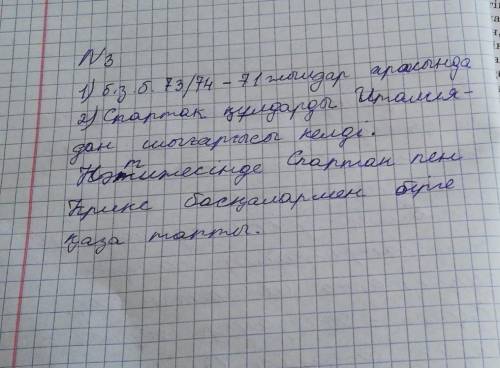 N3
1) б.з.б. 73/74 – 71 жылдар арасында
2) Спартак құлдарды Италия-
дан шығарғысы келді.
Нәтижесінде Спартак пен
Крикс басқалармен бірге
қаза тапты.